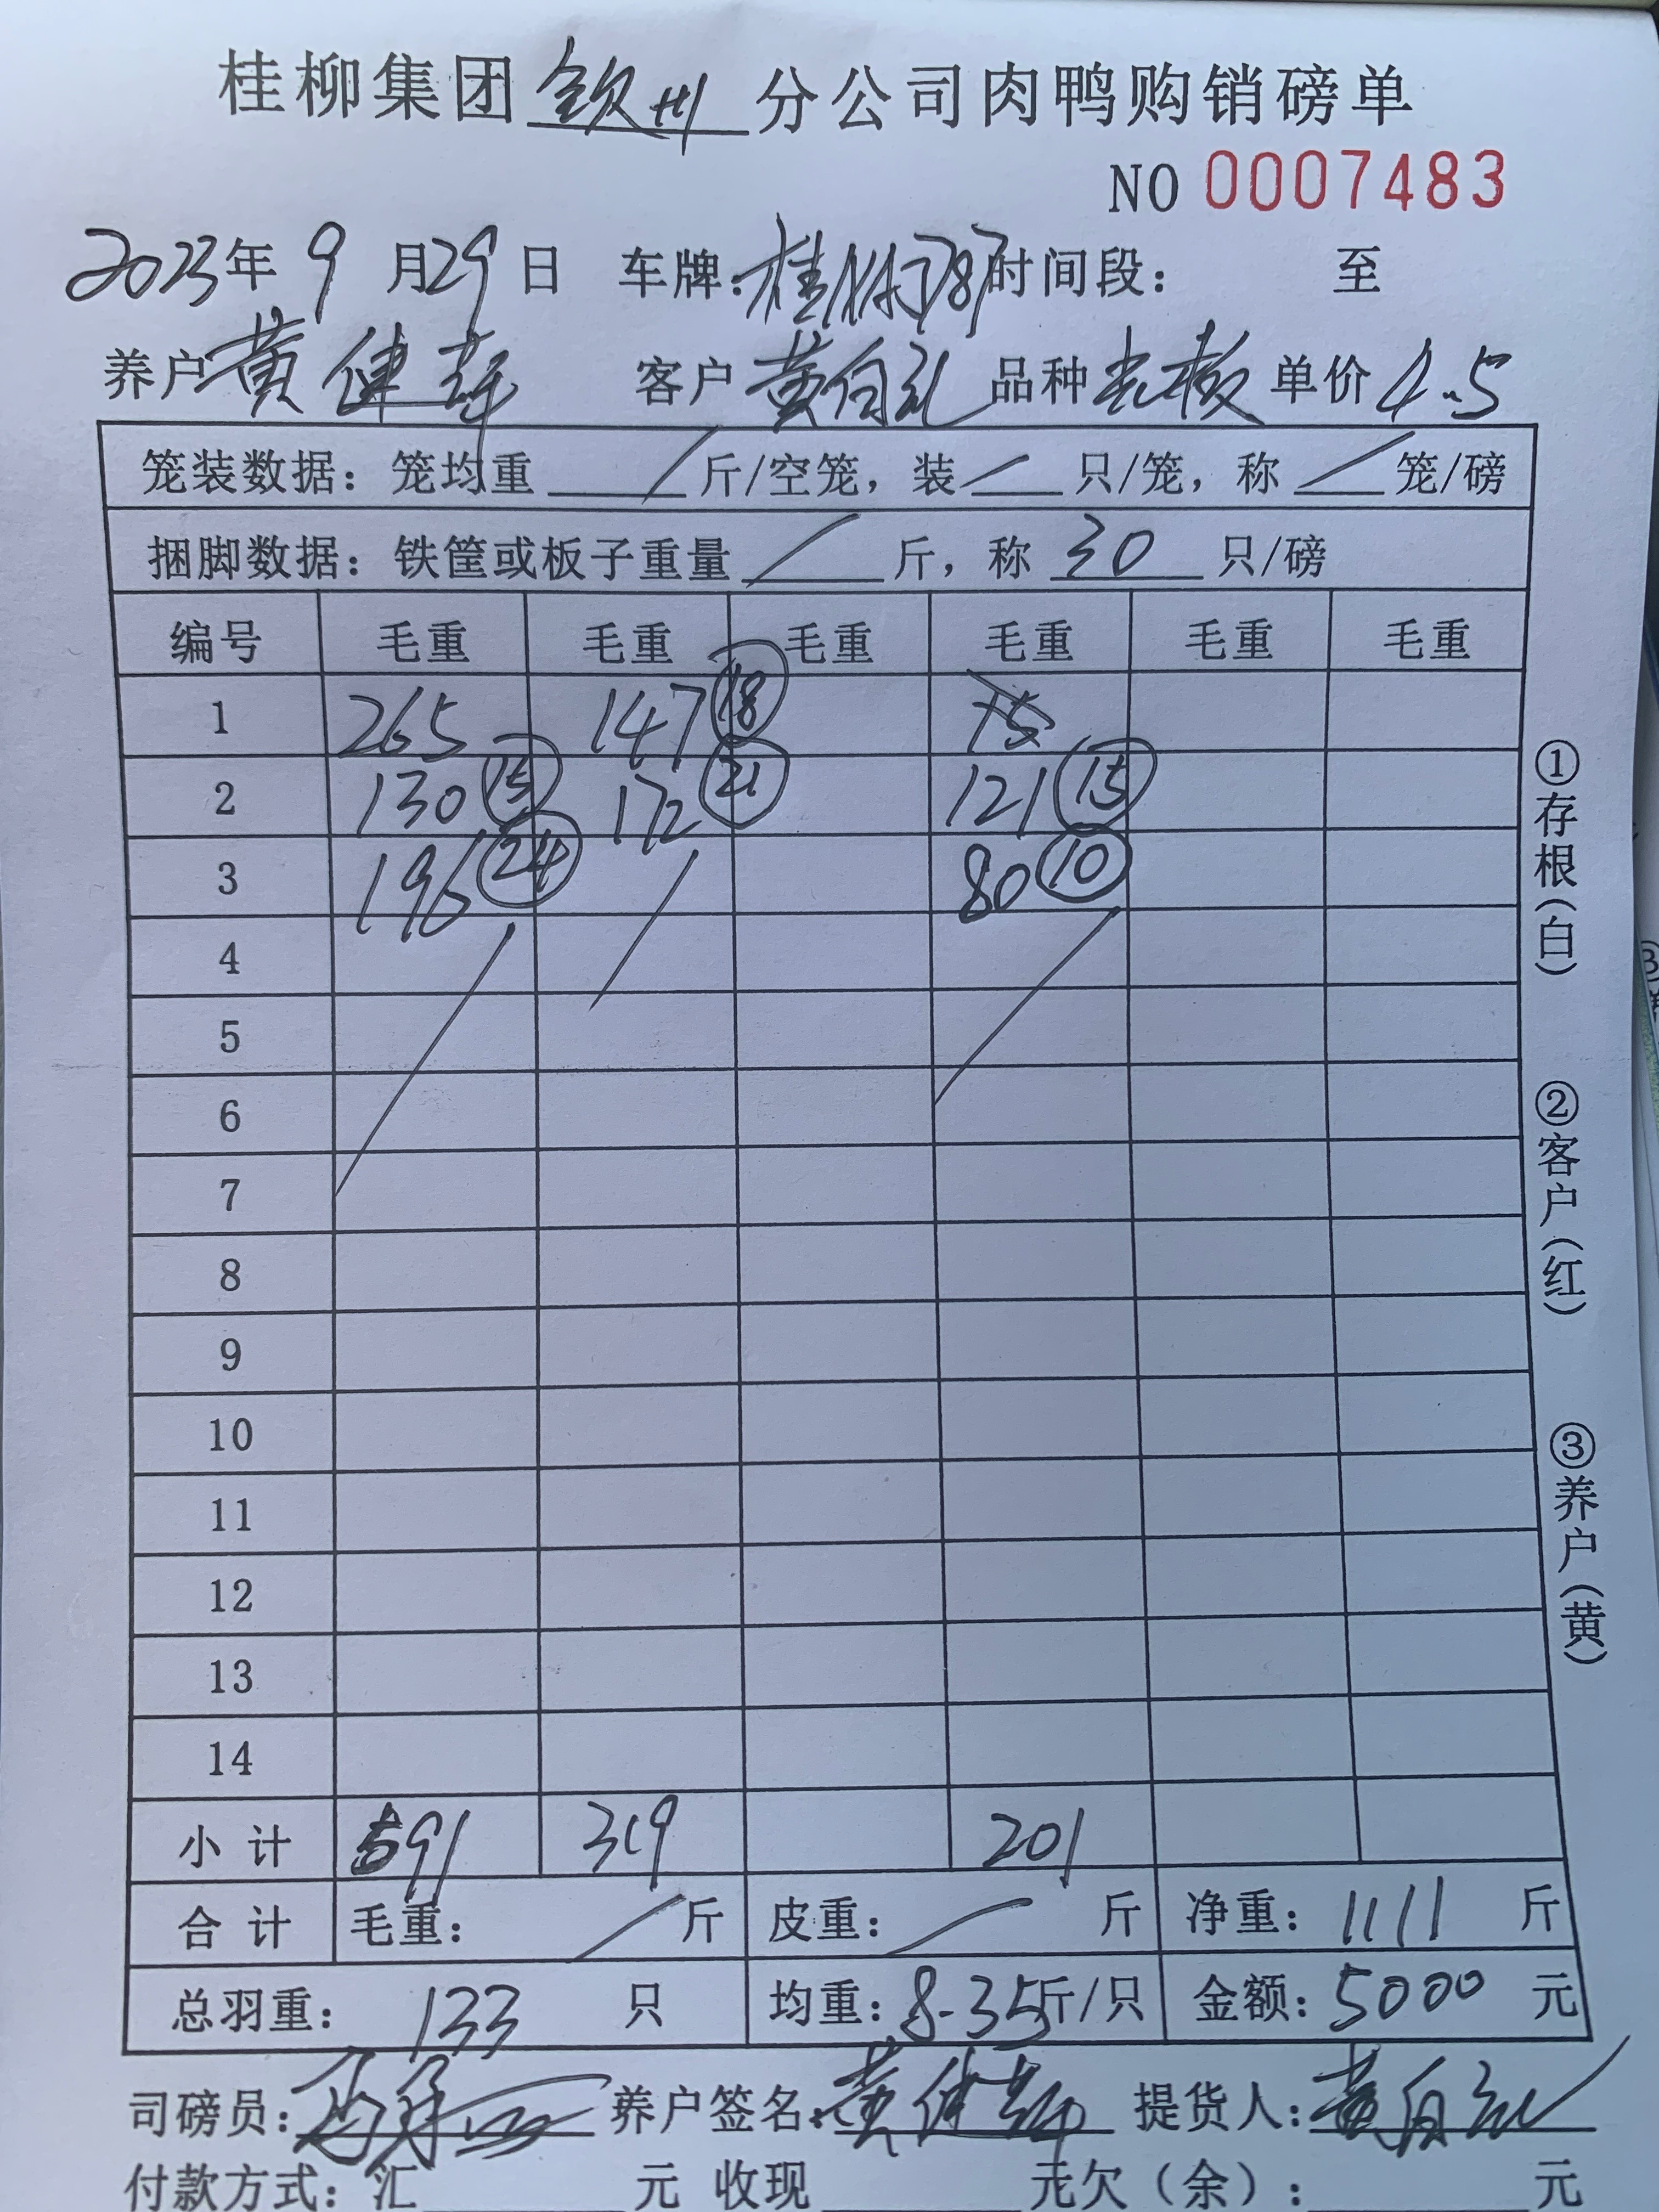 桂柳集团 钦州 分公司肉鸭购销磅单
NO 0007483
2023年 9 月 29 日 车牌: 时间段: 至
养户 黄健 客户 黄 品种 单价 4.5
笼装数据: 笼均重 / 斤/空笼, 装 / 只/笼, 称 / 笼/磅
捆脚数据: 铁筐或板子重量 / 斤, 称 30 只/磅
编号 毛重 毛重 毛重 毛重 毛重 毛重
1 265 147 18 15
2 130 15 172 21 121 15
3 196 24 80 10
4
5
6
7
8
9
10
11
12
13
14
小 计 591 319 201
合 计 毛重: / 斤 皮重: / 斤 净重: 1111 斤
总羽重: 133 只 均重: 8.35斤/只 金额: 5000 元
司磅员: 养户签名: 黄健 提货人: 黄
付款方式: 汇 元 收现 元欠(余): 元
①存根(白)
②客户(红)
③养户(黄)